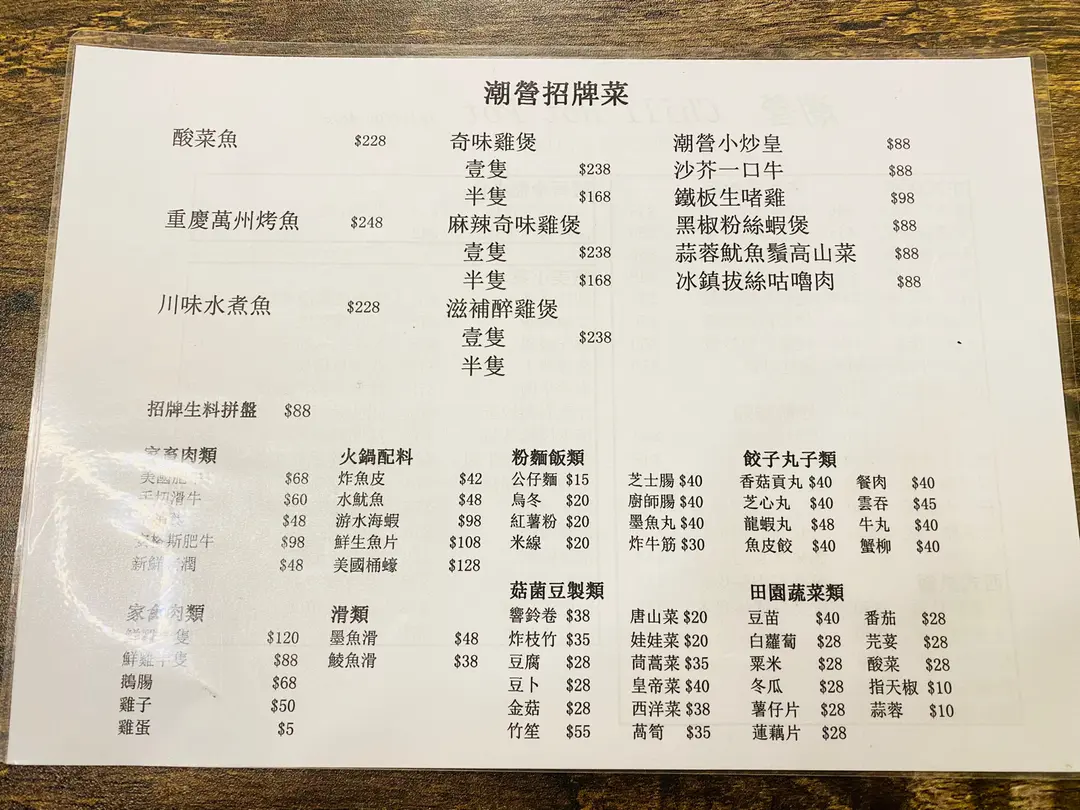 潮營招牌菜
酸菜魚 $228
重慶萬州烤魚 $248
川味水煮魚 $228
奇味雞煲
壹隻 $238
半隻 $168
麻辣奇味雞煲
壹隻 $238
半隻 $168
滋補醉雞煲
壹隻 $238
半隻
潮營小炒皇 $88
沙芥一口牛 $88
鐵板生啫雞 $98
黑椒粉絲蝦煲 $88
蒜蓉魷魚鬚高山菜 $88
冰鎮拔絲咕嚕肉 $88
招牌生料拼盤 $88
家畜肉類
美國肥 $68
手切滑牛 $60
$48
安格斯肥牛 $98
新鮮 潤 $48
火鍋配料
炸魚皮 $42
水魷魚 $48
游水海蝦 $98
鮮生魚片 $108
美國桶蠔 $128
粉麵飯類
公仔麵 $15
烏冬 $20
紅薯粉 $20
米線 $20
芝士腸 $40
廚師腸 $40
墨魚丸 $40
炸牛筋 $30
餃子丸子類
香菇貢丸 $40
芝心丸 $40
龍蝦丸 $48
魚皮餃 $40
餐肉 $40
雲吞 $45
牛丸 $40
蟹柳 $40
家禽肉類
鮮雞 隻 $120
鮮雞半隻 $88
鵝腸 $68
雞子 $50
雞蛋 $5
滑類
墨魚滑 $48
鯪魚滑 $38
菇菌豆製類
響鈴卷 $38
炸枝竹 $35
豆腐 $28
豆卜 $28
金菇 $28
竹笙 $55
唐山菜 $20
娃娃菜 $20
茼蒿菜 $35
皇帝菜 $40
西洋菜 $38
萵筍 $35
田園蔬菜類
豆苗 $40
白蘿蔔 $28
粟米 $28
冬瓜 $28
薯仔片 $28
蓮藕片 $28
番茄 $28
芫荽 $28
酸菜 $28
指天椒 $10
蒜蓉 $10